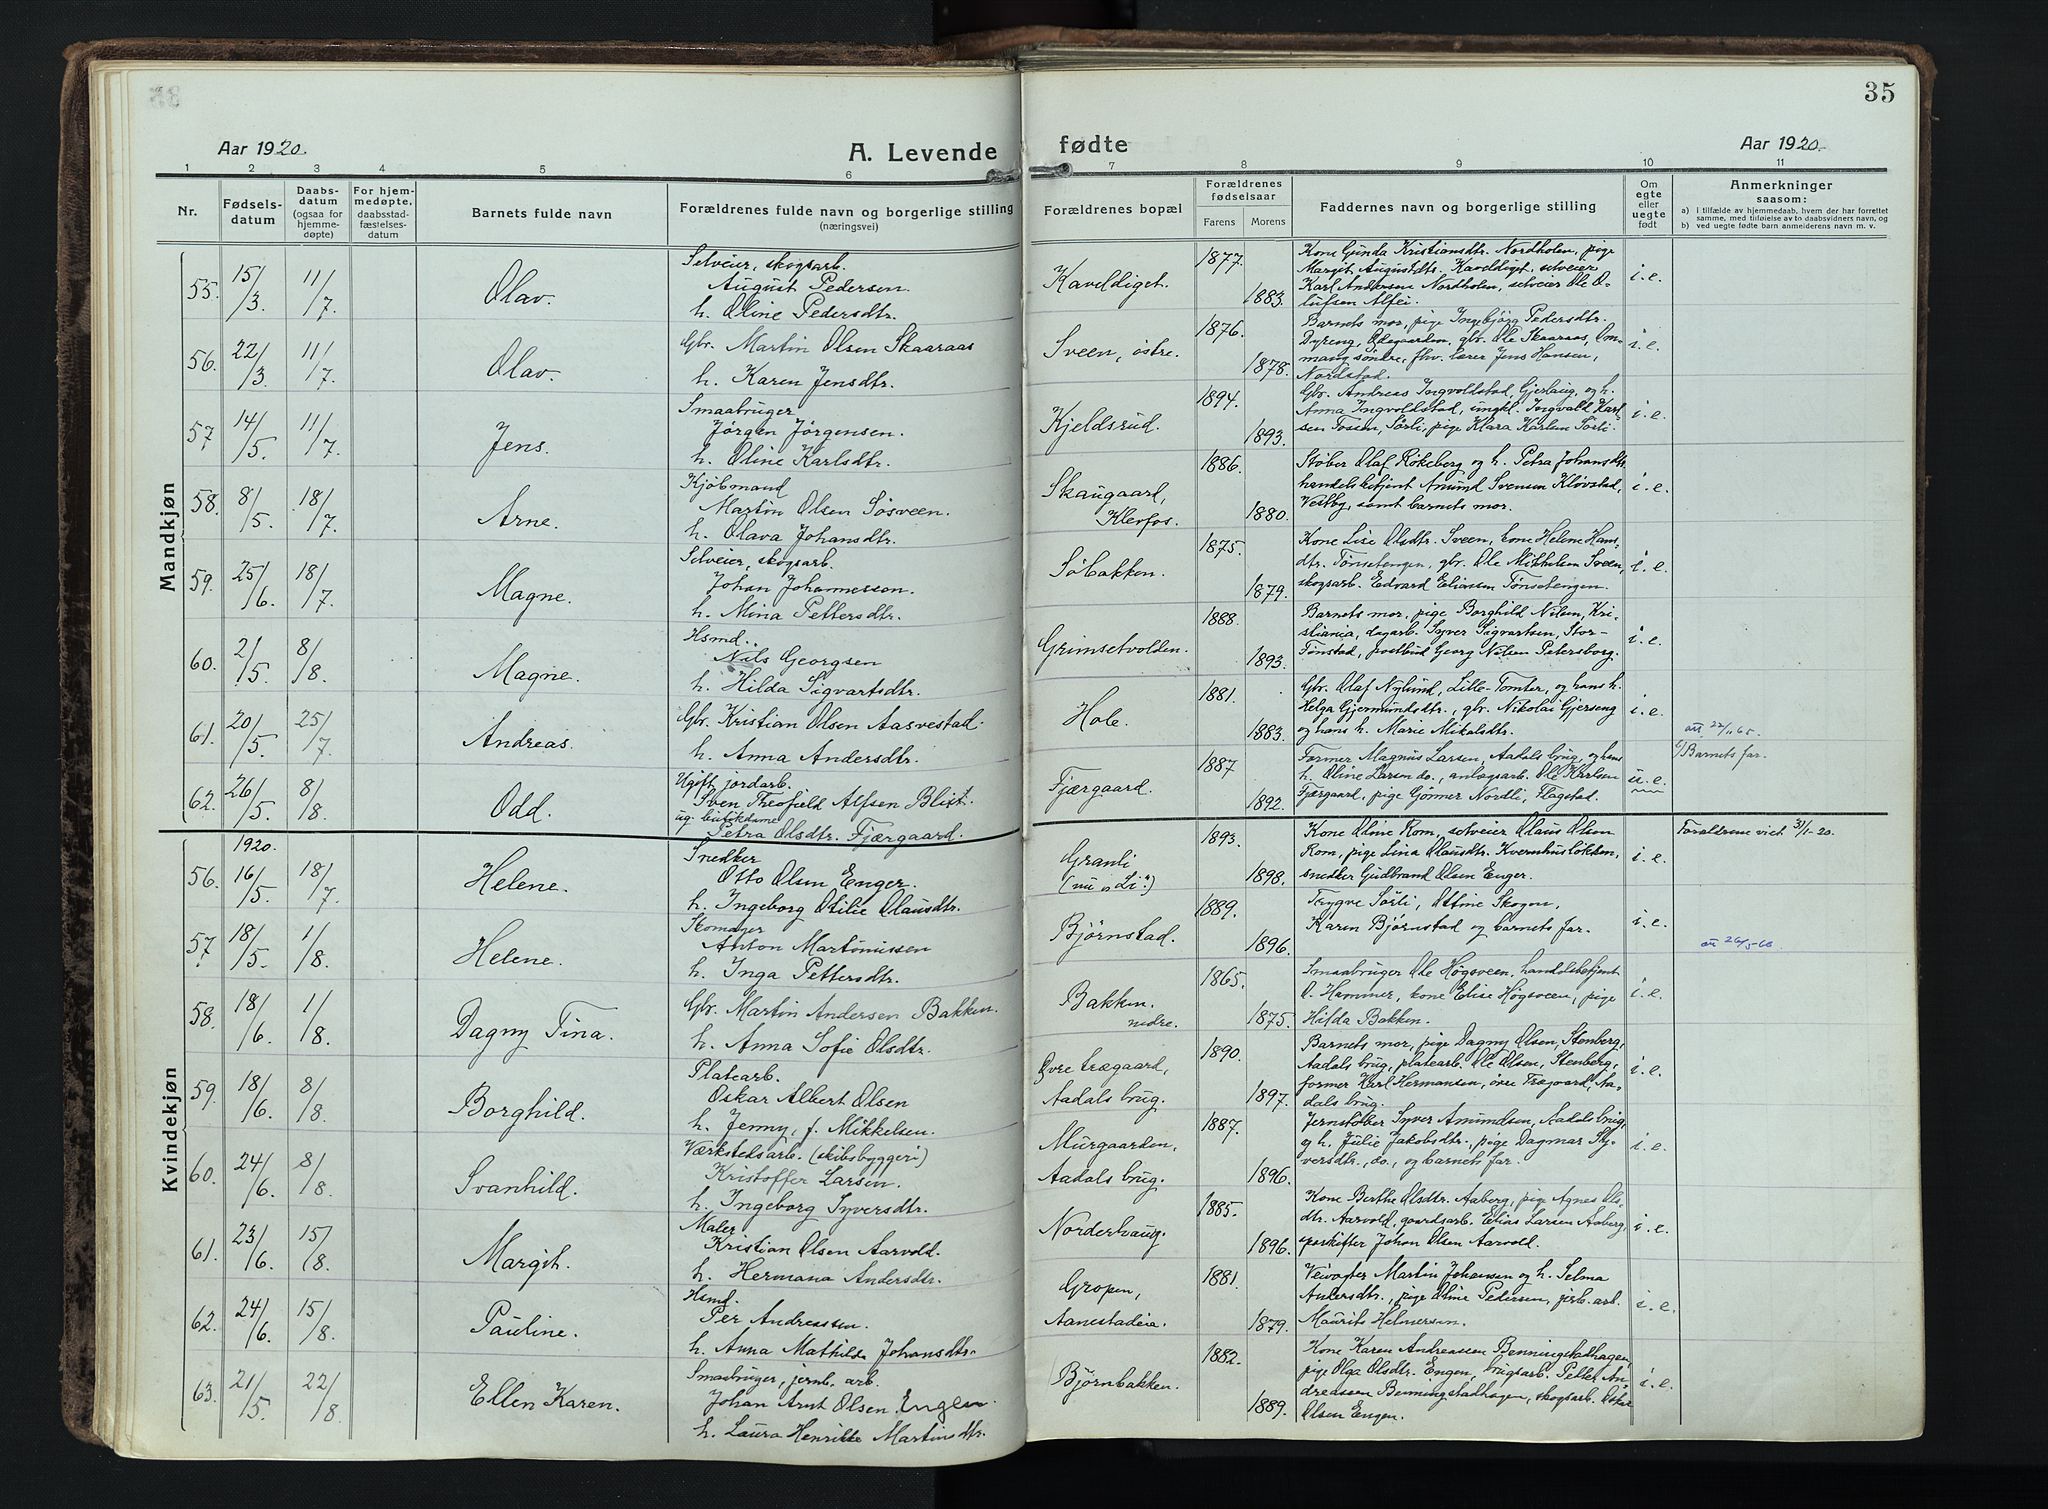 35
Aar 1920.
A. Levende
fødte
Aar 1920.
1 2 3 4 5 6 7 8 9 10 11
Nr.
Fødsels-
datum
Daabs-
datum
(ogsaa for
hjemme-
døpte)
For hjem-
medøpte,
daabsstad-
fæstelses-
datum
Barnets fulde navn
Forældrenes fulde navn og borgerlige stilling
(næringsvei)
Forældrenes bopæl
Forældrenes
fødselsaar
Farens Morens
Faddernes navn og borgerlige stilling
Om
egte
eller
uegte
født
Anmerkninger
saasom:
a) i tilfælde av hjemmedaab, hvem der har forrettet
samme, med tilføielse av to daabsvidners navn, og
b) ved uegte fødte barn anmelderens navn m. v.
Mandkjøn
55. 15/3. 11/7. Olav.
Selveier, skogsarb.
August Pedersen.
h. Oline Pedersdtr.
Kaveldiget. 1877. 1883.
Kone Gunda Kristiansdtr. Nordholen, pige
Margit Augustdtr. Kaveldiget, selveier
Karl Andersen Nordholen, selveier Ole O-
lufsen Alfei.
i. e.
56. 22/3. 11/7. Olav.
Gbr. Martin Olsen Skaaraas
h. Karen Jensdtr.
Sveen, østre. 1876. 1878.
Barnets mor, pige Ingebjørg Pedersdtr.
Dyreng, gbr. Ole Skaaraas,
fhv. lærer Jens Hansen,
Nordstad.
i. e.
57 14/5. 11/7. Jens.
Smaabruger
Jørgen Jørgensen.
h. Oline Karlsdtr.
Kjeldsrud. 1894. 1893.
Gbr. Andreas Ingvoldstad, Gjerlaug, og h.
Anna Ingvoldstad, ungkl. Ingvald Karl-
sen Tossen, Sørli, pige Klara Karlsen Sørli.
i. e.
58. 8/5. 18/7. Arne.
Kjøbmand
Martin Olsen Søsveen.
h. Olava Johansdtr.
Skaugaard,
Klevfos. 1886. 1880.
Støber Olaf Røkeberg og h. Petra Johansdtr.
handelsbetjent Amund Svensen Kløvstad,
Vestby, samt barnets mor.
i. e.
59. 25/6. 18/7. Magne.
Selveier, skogsarb.
Johan Johannessen.
h. Mina Pettersdtr.
Søbakken. 1875. 1879.
Kone Lise Olsdtr. Sveen, kone Helene Hans-
dtr. Tønsetengen, gbr. Ole Mikkelsen Sveen,
skogsarb. Edvard Eliassen Tønsetengen.
i. e.
60. 2/5. 8/8. Magne.
Hsmd.
Nils Georgsen
h. Hilda Sigvartsdtr.
Grimsetvolden. 1888. 1893.
Barnets mor, pige Borghild Nilsen, Kri-
stiania, dagarb. Syver Sigvartsen, Stor-
Tønstad, postbud Georg Nilsen Petersborg.
i. e.
61. 20/5. 25/7. Andreas.
Gbr. Kristian Olsen Aasvestad.
h. Anna Andersdtr.
Hole. 1881. 1883.
Gbr. Olaf Nylund, Lille-Tomter, og hans h.
Helga Gjermundsdtr., gbr. Nikolai Gjerseng
og hans h. Marie Mikalsdtr.
i. e.
att. 22/11 65.
62. 26/5. 8/8. Odd.
Ugift jordarb.
Sven Theofield Alfsen Blixt.
ug. butikdame
Petra Olsdtr. Fjærgaard.
Fjærgaard. 1887 1892.
Former Magnus Larsen, Aadals brug, og hans
h. Oline Larsen do., anlægsarb. Ole Karlsen
Fjærgaard, pige Gønner Nordli, Flagstad.
u. e.
Barnets far.
Kvindekjøn
1920.
56. 16/5. 18/7. Helene.
Snedker
Otto Olsen Enger.
h. Ingeborg Otilie Olausdtr.
Granli
(nu "Li") 1893. 1898.
Kone Oline Rom, selveier Olaus Olsen
Rom, pige Lina Olausdtr. Kvernhusløkken,
snedker Gudbrand Olsen Enger.
i. e.
Forældrene viet 31/1-20.
57. 18/5. 1/8. Helene.
Skomager
Anton Martinussen
h. Inga Pettersdtr.
Bjørnstad. 1889. 1896.
Trygve Sørli, Otine Skogen,
Karen Bjørnstad og barnets far.
i. e.
att 26/5-66
58. 18/6. 1/8. Dagny Tina.
Gbr. Martin Andersen Bakken.
h. Anna Sofie Olsdtr.
Bakken.
nedre. 1865. 1875.
Smaabruger Ole Høgsveen, handelsbetjent
O. Hammer, kone Elise Høgsveen, pige
Hilda Bakken.
i. e.
59. 18/6. 8/8. Borghild.
Platearb.
Oskar Albert Olsen
h. Jenny, f. Mikkelsen.
Øvre trægaard,
Aadals brug. 1890. 1897.
Barnets mor, pige Dagny Olsen, Stenberg,
Aadals brug, platearb. Ole Olsen, Stenberg,
former Karl Hermansen, øvre Trægaard, Aa-
dals brug.
i. e.
60. 24/6. 8/8. Svanhild.
Værkstedsarb. (skibsbyggeri)
Kristoffer Larsen.
h. Ingeborg Syversdtr.
Murgaarden,
Aadals brug. 1887. 1896.
Jernstøber Syver Amundsen, Aadals brug,
og h. Julie Jakobsdtr., pige Dagmar Sy-
versdtr., do., og barnets far.
i. e.
61. 23/6. 15/8. Margit.
Maler
Kristian Olsen Aarvold.
h. Hermana Andersdtr.
Norderhaug. 1885. 1896.
Kone Berthe Olsdtr. Aaberg, pige Agnes Ols-
dtr. Aarvold, gaardsarb. Elias Larsen Aaberg,
sporskifter Johan Olsen Aarvold.
i. e.
62. 24/6. 15/8. Pauline.
Hsmd.
Per Andreassen.
h. Anna Mathilde Johansdtr.
Gropen,
Aanestadeia. 1881. 1879.
Veivogter Martin Johansen og h. Selma
Andersdtr., pige Oline Pedersen, jerb. arb.
Maurits Helmersen.
i. e.
63. 21/5. 22/8. Ellen Karen.
Smaabruger, jernb. arb.
Johan Arnt Olsen Engen.
h. Laura Henrikke Martinsdtr.
Bjørnbakken. 1882. 1889.
Kone Karen Andreassen Benningstadhagen,
pige Olga Olsdtr. Engen, brugsarb. Petter An-
dreassen Benningstadhagen, skogsarb. Oskar
Olsen Engen.
i. e.